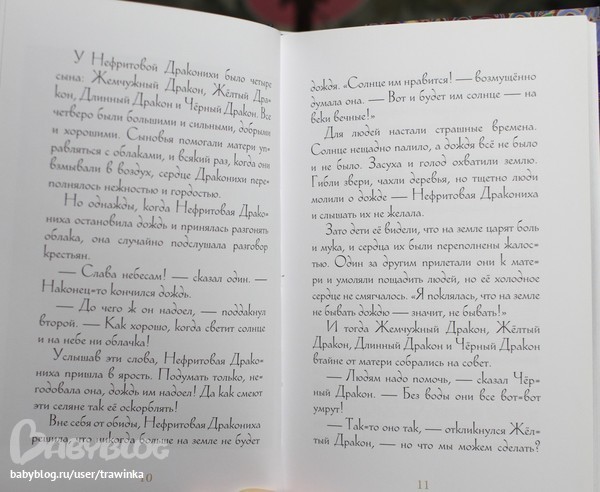 У Нефритовой Драконихи было четыре
сына: Жемчужный Дракон, Жёлтый Дра-
кон, Длинный Дракон и Чёрный Дракон. Все
четверо были большими и сильными, добрыми
и хорошими. Сыновья помогали матери уп-
равляться с облаками, и всякий раз, когда они
взмывали в воздух, сердце Драконихи пере-
полнялось нежностью и гордостью.
Но однажды, когда Нефритовая Драко-
ниха остановила дождь и принялась разгонять
облака, она случайно подслушала разговор
крестьян.
— Слава небесам! — сказал один. —
Наконец-то кончился дождь.
— До чего ж он надоел, — поддакнул
второй. — Как хорошо, когда светит солнце
и на небе ни облачка!
Услышав эти слова, Нефритовая Драко-
ниха пришла в ярость. Подумать только, не-
годовала она, дождь им надоел! Да как смеют
эти селяне так её оскорблять!
Вне себя от обиды, Нефритовая Дракониха
решила, что никогда больше на земле не будет
10
дождя. «Солнце им нравится! — возмущённо
думала она. — Вот и будет им солнце — на
веки вечные!»
Для людей настали страшные времена.
Солнце нещадно палило, а дождя всё не было
и не было. Засуха и голод охватили землю.
Гибли звери, чахли деревья, но тщетно люди
молили о дожде — Нефритовая Дракониха
и слышать их не желала.
Зато дети её видели, что на земле царят боль
и мука, и сердца их были переполнены жалос-
тью. Один за другим прилетали они к мате-
ри и умоляли пощадить людей, но её холодное
сердце не смягчалось. «Я поклялась, что на земле
не бывать дождю — значит, не бывать!»
И тогда Жемчужный Дракон, Жёлтый
Дракон, Длинный Дракон и Чёрный Дракон
втайне от матери собрались на совет.
— Людям надо помочь, — сказал Чёр-
ный Дракон. — Без воды они все вот-вот
умрут!
— Так-то оно так, — откликнулся Жёл-
тый Дракон, — но что мы можем сделать?
11
BABYBLOG
babyblog.ru/user/trawinka